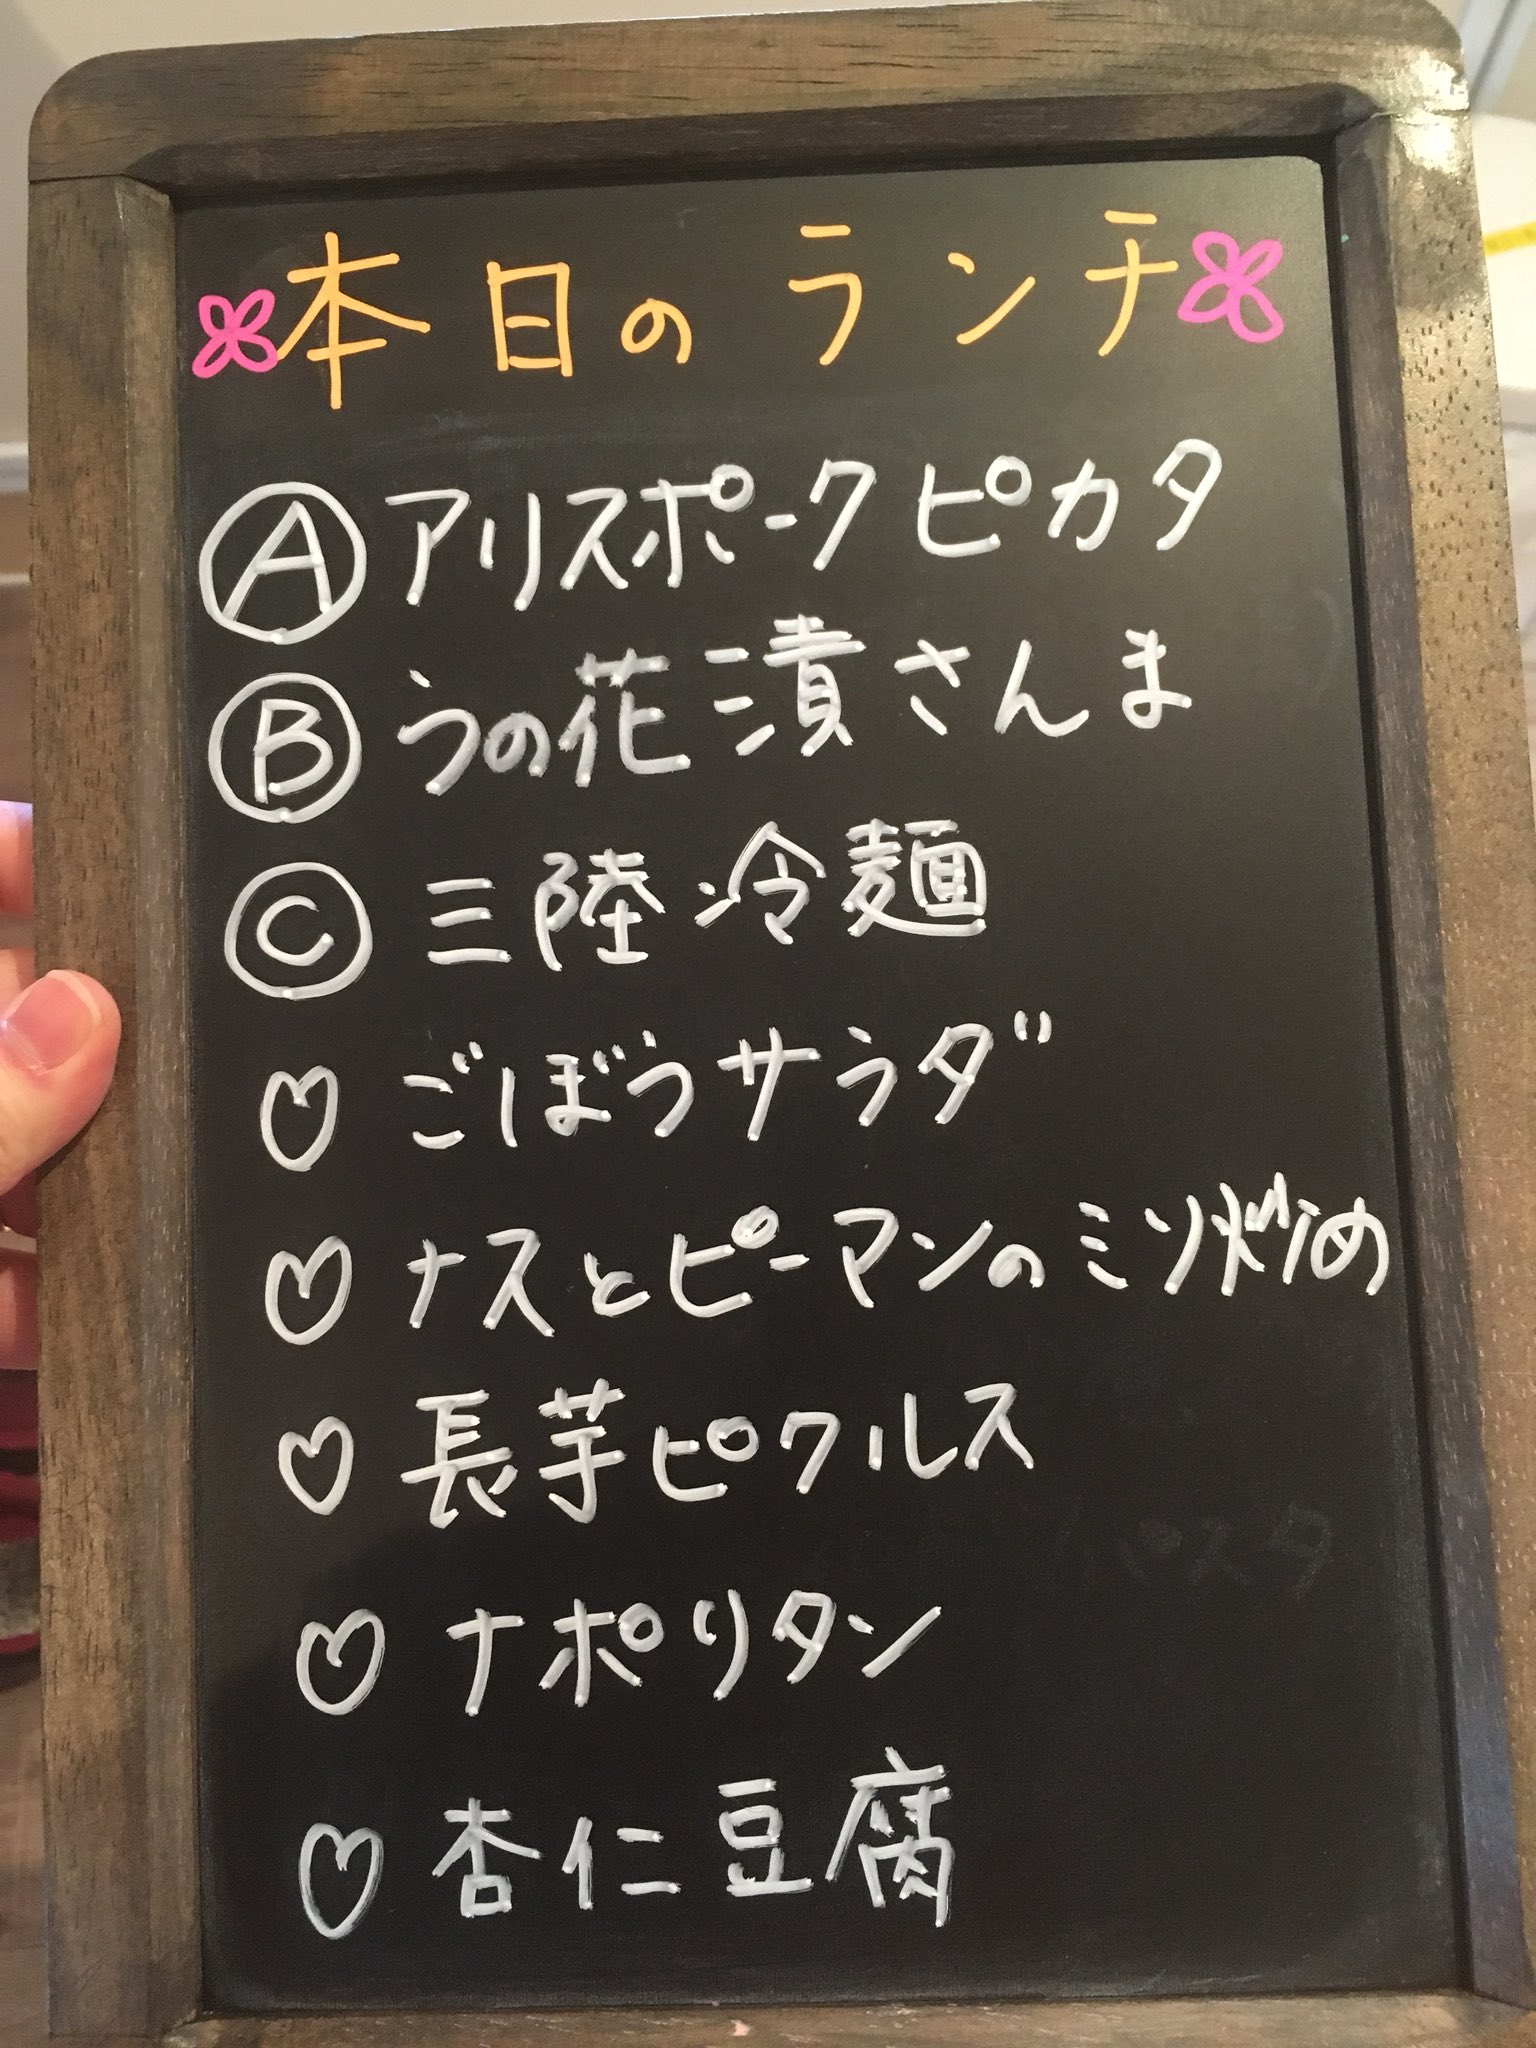 本日のランチ
Ⓐ アリスポークピカタ
Ⓑ うの花漬さんま
Ⓒ 三陸冷麺
♡ ごぼうサラダ
♡ ナスとピーマンのミソ炒め
♡ 長芋ピクルス
♡ ナポリタン
♡ 杏仁豆腐